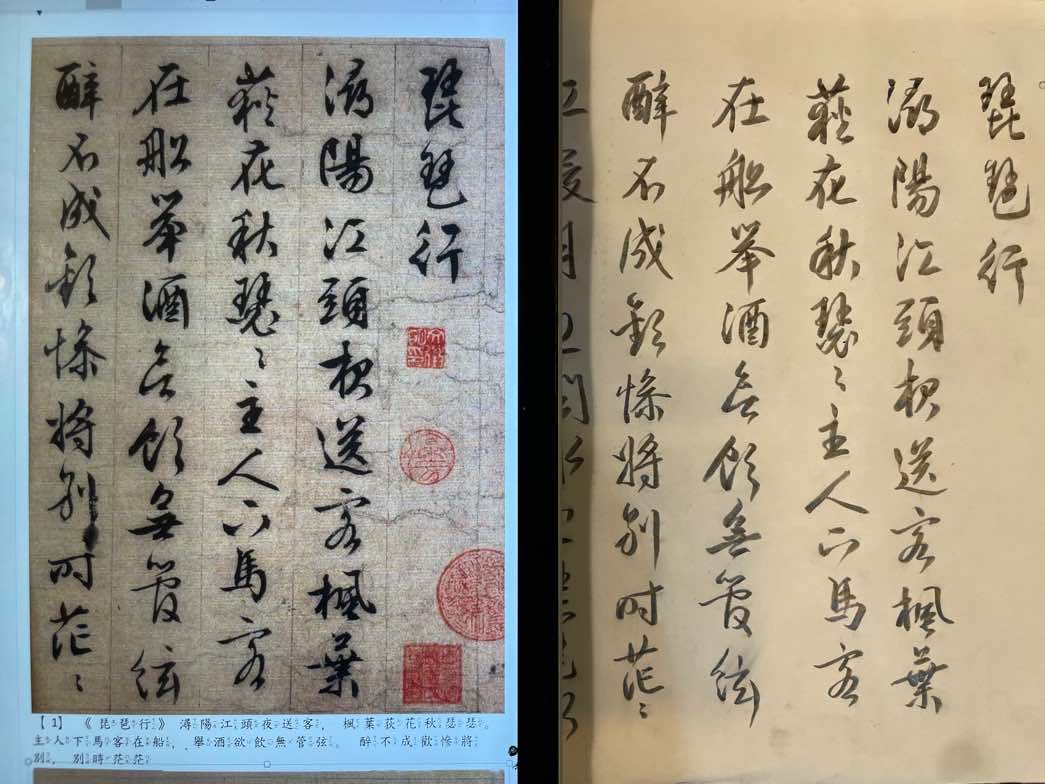 琵琶行
潯陽江頭夜送客楓葉
荻花秋瑟〻主人下馬客
在船舉酒欲飲無管絃
醉不成歡慘將別時茫〻
【1】《琵琶行》潯陽江頭夜送客，楓葉荻花秋瑟瑟。
主人下馬客在船，舉酒欲飲無管弦。醉不成歡慘將
別，別時茫茫
琵琶行
潯陽江頭夜送客楓葉
荻花秋瑟〻主人下馬客
在船舉酒欲飲無管絃
醉不成歡慘將別時茫〻